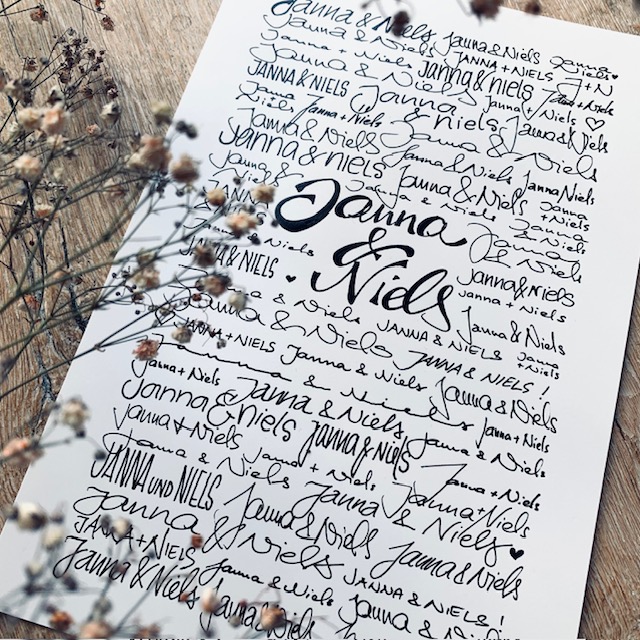 Janna & Niels Janna & Niels Janna & Niels ♥
Janna & Niels JANNA + NIELS J+N
Janna + Niels Janna & Niels Janna + Niels
Janna & Niels Janna + Niels ♡
JANNA & NIELS Janna & Niels Janna & Niels
Janna & Niels Janna + Niels Janna & Niels
Janna & Niels Janna & Niels Janna Niels
Janna & Niels Janna & Niels Janna + Niels
Janna & Janna & Niels Janna & Niels
Janna & Niels
JANNA & NIELS ♥ Janna & Niels
Janna + Niels
Janna & Niels Janna & Niels
Janna & Niels JANNA & NIELS Janna + Niels
JANNA + NIELS Janna & Niels JANNA & NIELS !
Janna & Niels Janna & Niels
Janna + Niels Janna & Niels Janna + Niels
Janna & Niels Janna & Niels Janna & Niels
Janna + Niels Janna + Niels Janna + Niels
Janna & Niels Janna & Niels Janna + Niels
JANNA UND NIELS Janna & Niels ♥
Janna & Niels Janna & Niels Janna & Niels
JANNA + NIELS Janna & Niels JANNA & NIELS !
Janna & Niels Janna & Niels Janna & Niels